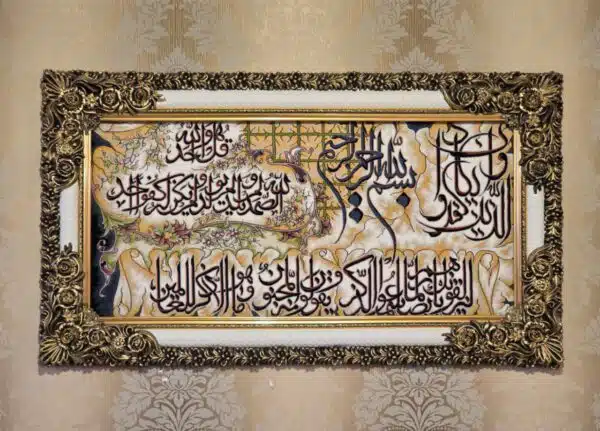 بسم الله الرحمن الرحيم
وان يكاد
الذين كفروا
ليزلقونك بأبصارهم لما سمعوا الذكر ويقولون إنه لمجنون وما هو إلا ذكر للعالمين
قل هو الله أحد
الله الصمد لم يلد ولم يولد ولم يكن له كفوا أحد